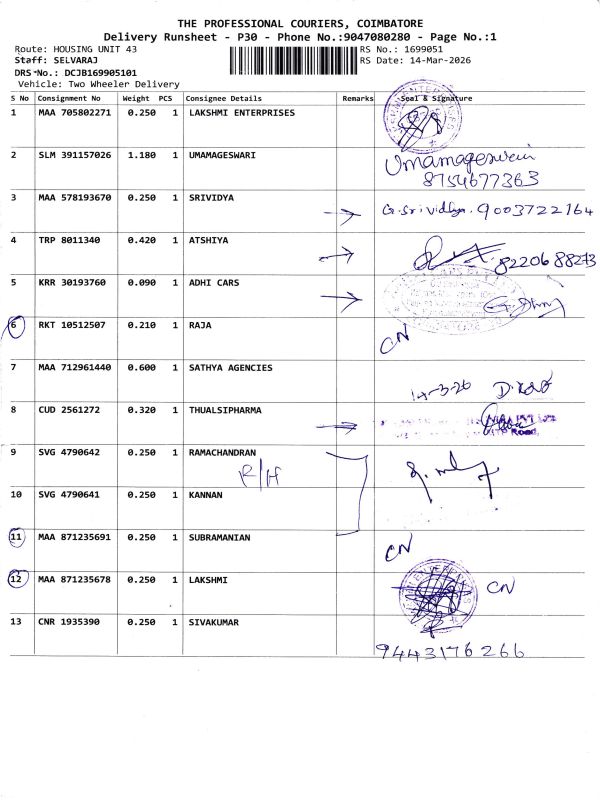 THE PROFESSIONAL COURIERS, COIMBATORE
Delivery Runsheet - P30 - Phone No.:9047080280 - Page No.:1
Route: HOUSING UNIT 43 RS No.: 1699051
Staff: SELVARAJ RS Date: 14-Mar-2026
DRS No.: DCJB169905101
Vehicle: Two Wheeler Delivery
S No Consignment No Weight PCS Consignee Details Remarks Seal & Signature
1 MAA 705802271 0.250 1 LAKSHMI ENTERPRISES
2 SLM 391157026 1.180 1 UMAMAGESWARI Umamageswari
8754677363
3 MAA 578193670 0.250 1 SRIVIDYA G.Srividhya. 9003722164
4 TRP 8011340 0.420 1 ATSHIYA 8220688273
5 KRR 30193760 0.090 1 ADHI CARS
6 RKT 10512507 0.210 1 RAJA CN
7 MAA 712961440 0.600 1 SATHYA AGENCIES
14-3-26
8 CUD 2561272 0.320 1 THUALSIPHARMA
9 SVG 4790642 0.250 1 RAMACHANDRAN
R/H
10 SVG 4790641 0.250 1 KANNAN
11 MAA 871235691 0.250 1 SUBRAMANIAN CN
12 MAA 871235678 0.250 1 LAKSHMI CN
13 CNR 1935390 0.250 1 SIVAKUMAR
9443176266